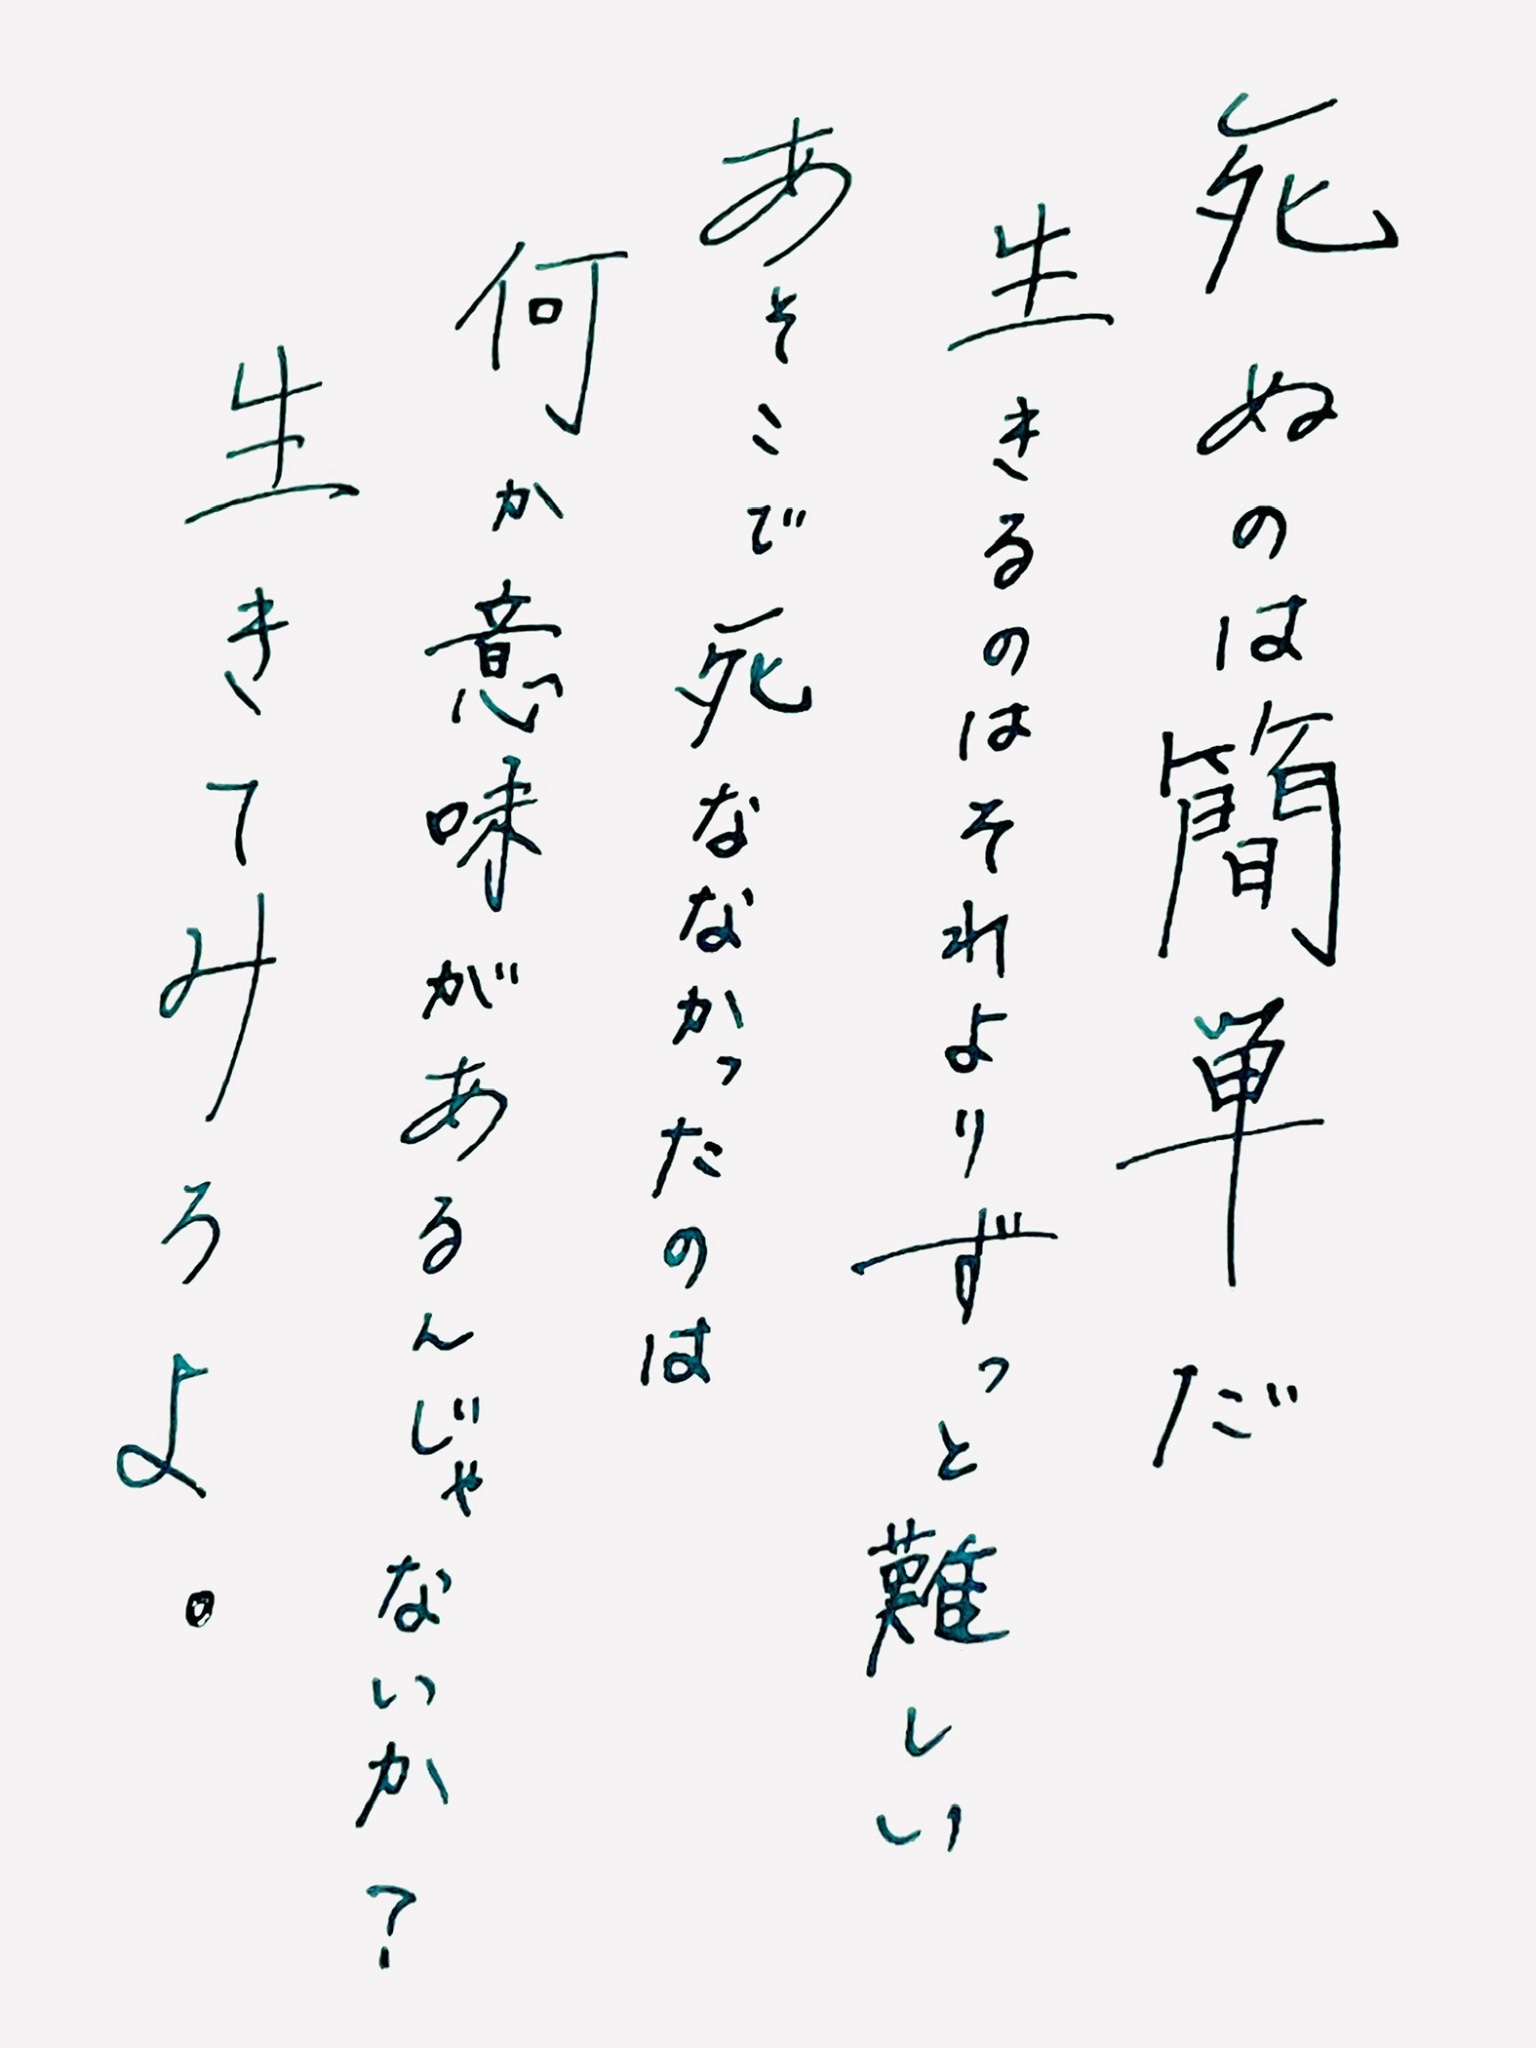 死ぬのは簡単だ
生きるのはそれよりずっと難しい
あそこで死ななかったのは
何か意味があるんじゃないか?
生きてみろよ。